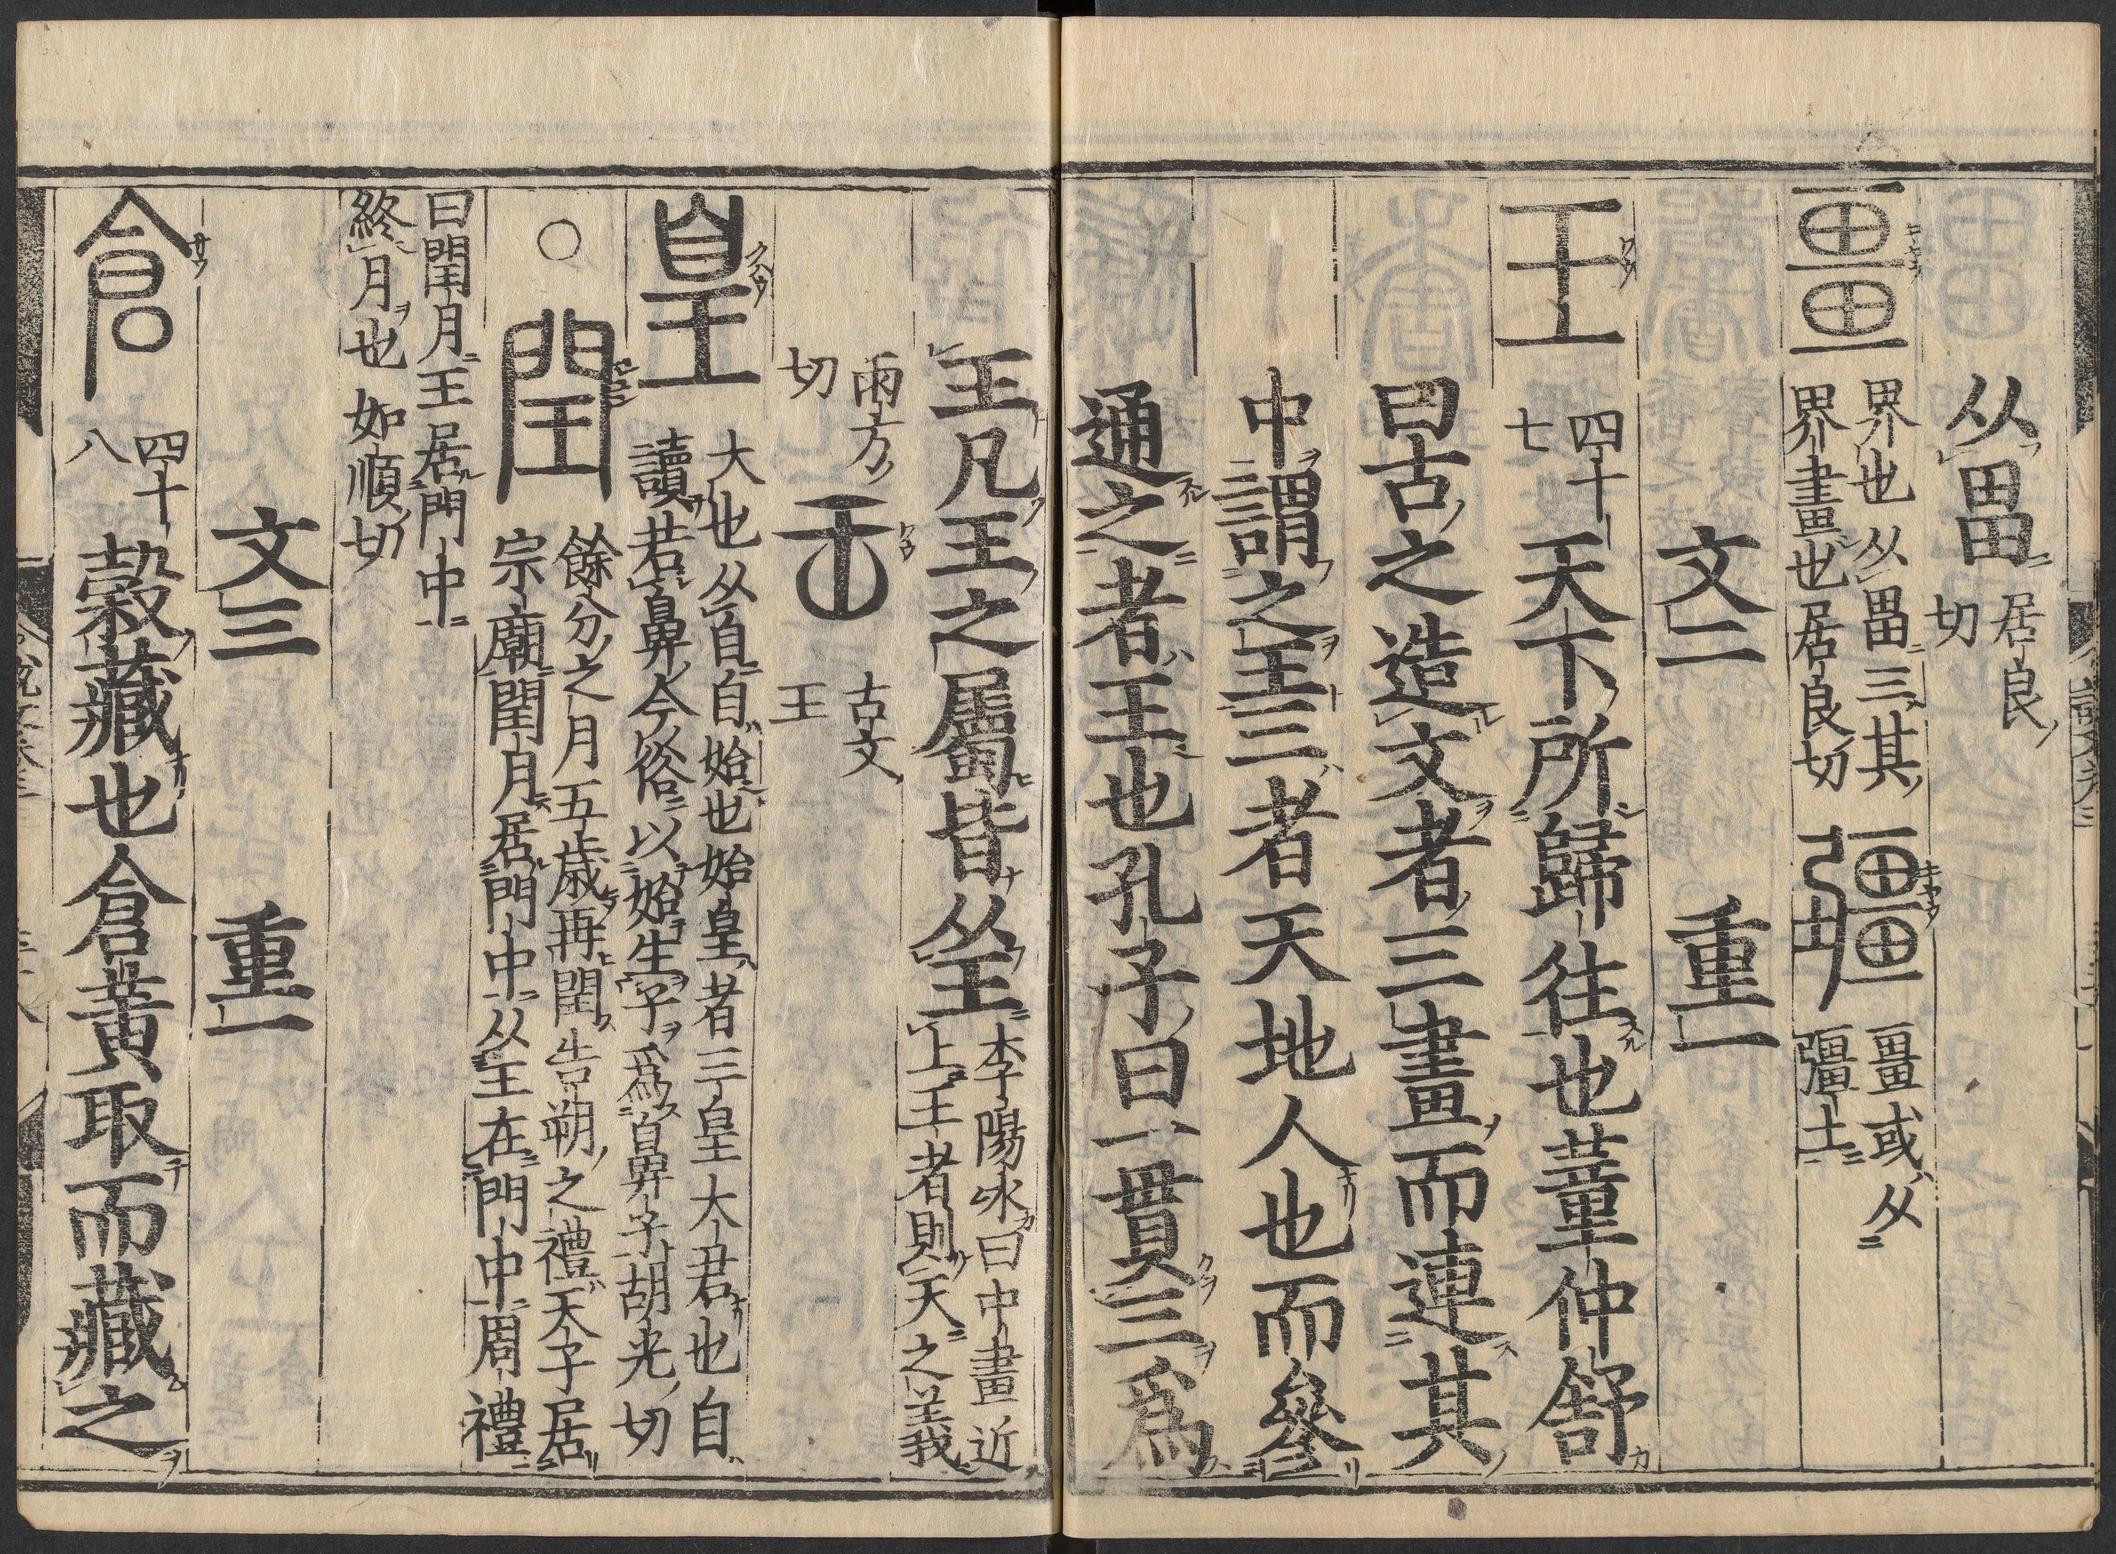 从畕居良切
畺界也从畕三其界畫也居良切 疆畺或从彊土
文二 重一
王四十七天下所歸往也董仲舒
曰古之造文者三畫而連其
中謂之王三者天地人也而參
通之者王也孔子曰一貫三爲
王凡王之屬皆从王李陽冰曰中畫近上王者則天之義
雨方切 𠙻古文王
皇大也从自自始也始皇者三皇大君也自讀若鼻今俗以始生子爲鼻子胡光切
○閏餘分之月五歲再閏告朔之禮天子居宗廟閏月居門中从王在門中周禮
曰閏月王居門中終月也如順切
文三 重一
倉四十八穀藏也倉黃取而藏之